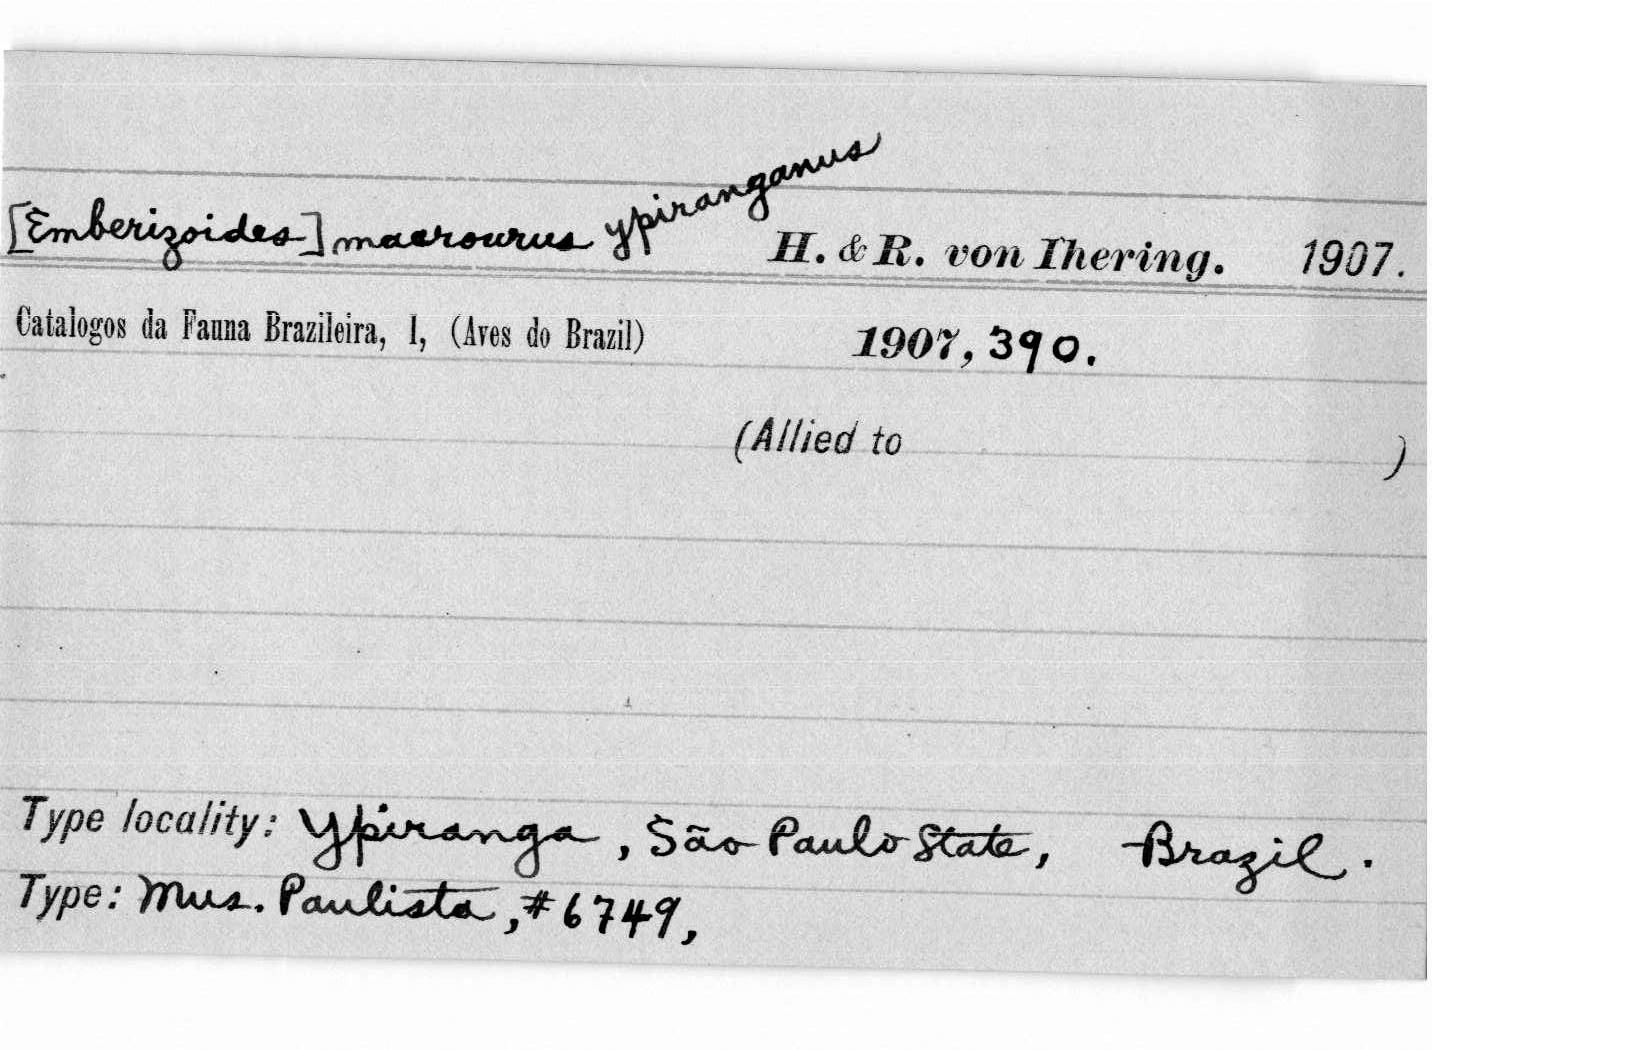 [Emberizoides] macrourus ypiranganus H. & R. von Ihering. 1907.
Catalogos da Fauna Brazileira, I, (Aves do Brazil) 1907, 390.
(Allied to )
Type locality: Ypiranga, São Paulo State, Brazil.
Type: Mus. Paulista, #6749,